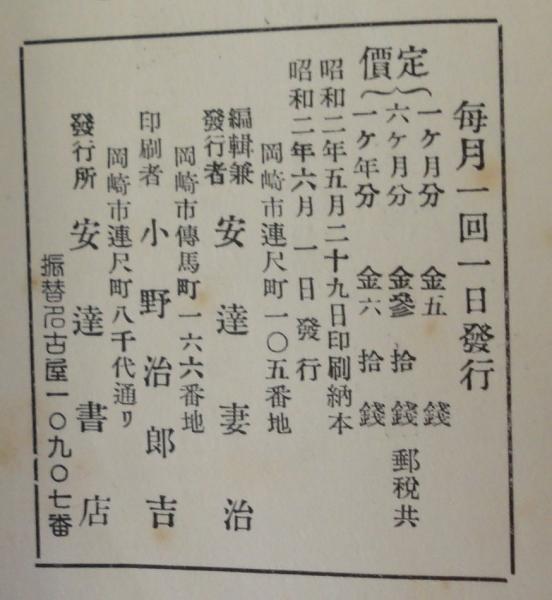 每月一回一日發行
定價
一ケ月分 金五錢
六ケ月分 金參拾錢 郵稅共
一ケ年分 金六拾錢
昭和二年五月二十九日印刷納本
昭和二年六月一日發行
岡崎市連尺町一〇五番地
編輯兼發行者 安達妻治
岡崎市傳馬町一六六番地
印刷者 小野治郎吉
岡崎市連尺町八千代通リ
發行所 安達書店
振替名古屋一〇九〇七番